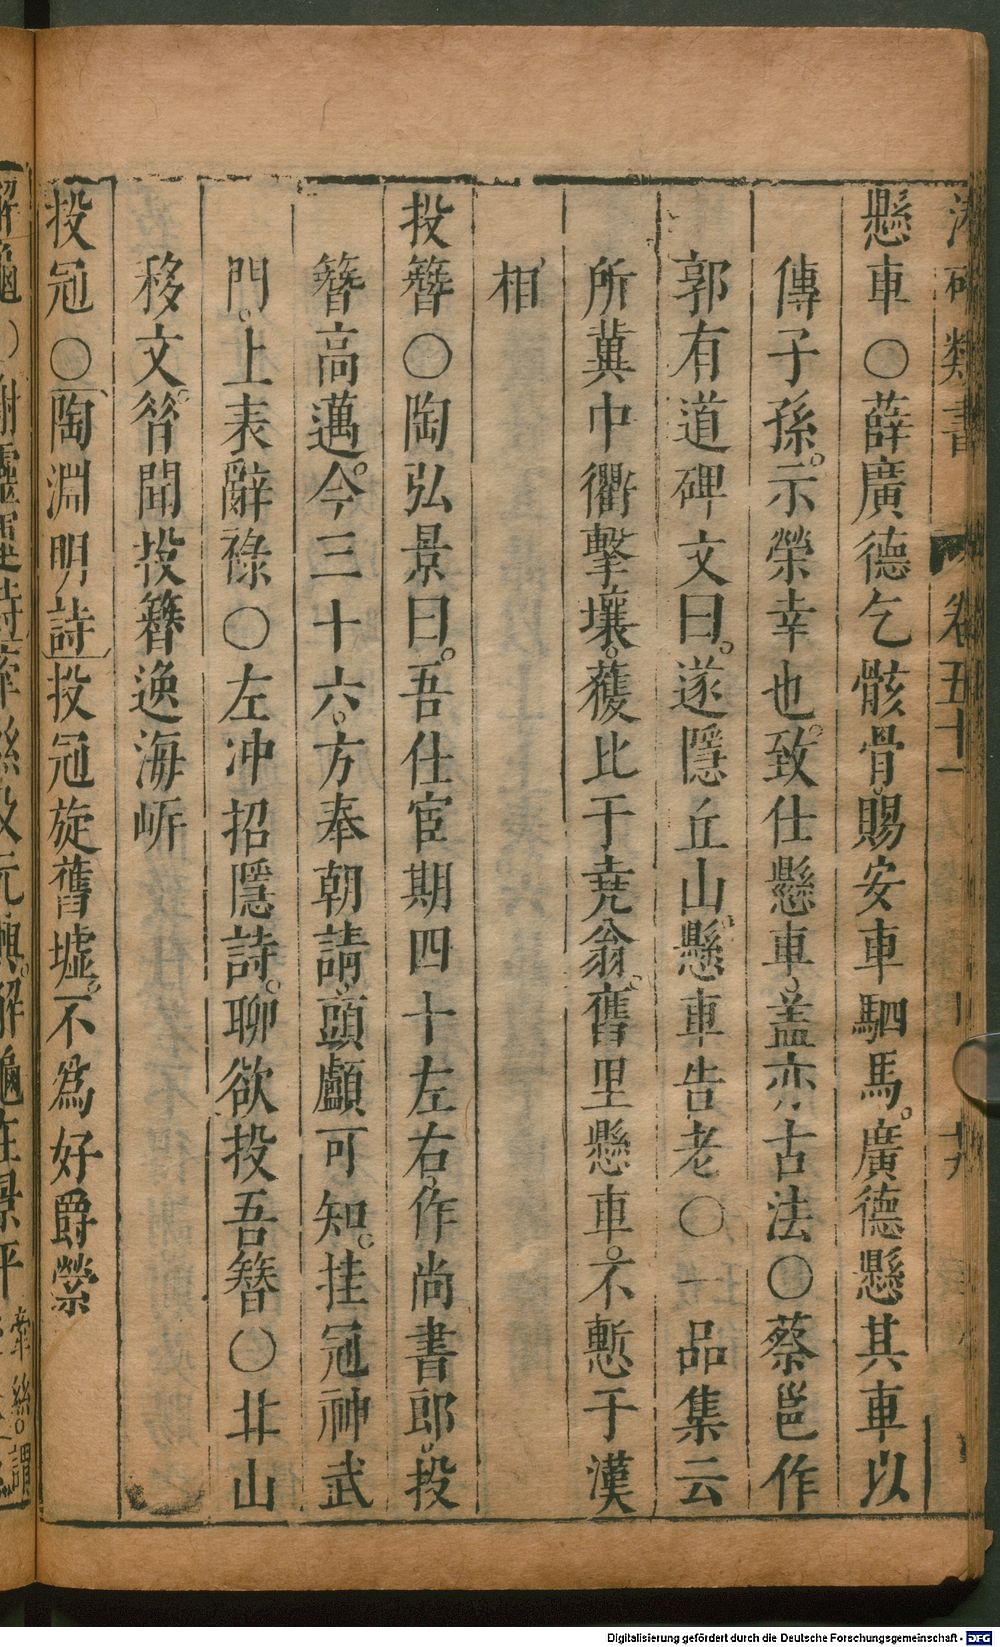 類書 卷五十一 十九
懸車○薛廣德乞骸骨賜安車駟馬。廣德懸其車以
傳子孫。示榮幸也。致仕懸車。盖亦古法○蔡邕作
郭有道碑文曰。遂隱丘山。懸車告老○一品集云
所冀中衢擊壤。獲比于堯翁。舊里懸車。不慙于漢
相
投簪○陶弘景曰。吾仕宦期四十左右。作尚書郎。投
簪高邁。今三十六。方奉朝請。頭顱可知。挂冠神武
門。上表辭祿○左冲招隱詩。聊欲投吾簪○北山
移文。昝聞投簪逸海岍
投冠○陶淵明詩投冠旋舊墟。不為好爵縈
牽絲謂
Digitalisierung gefördert durch die Deutsche Forschungsgemeinschaft - DFG